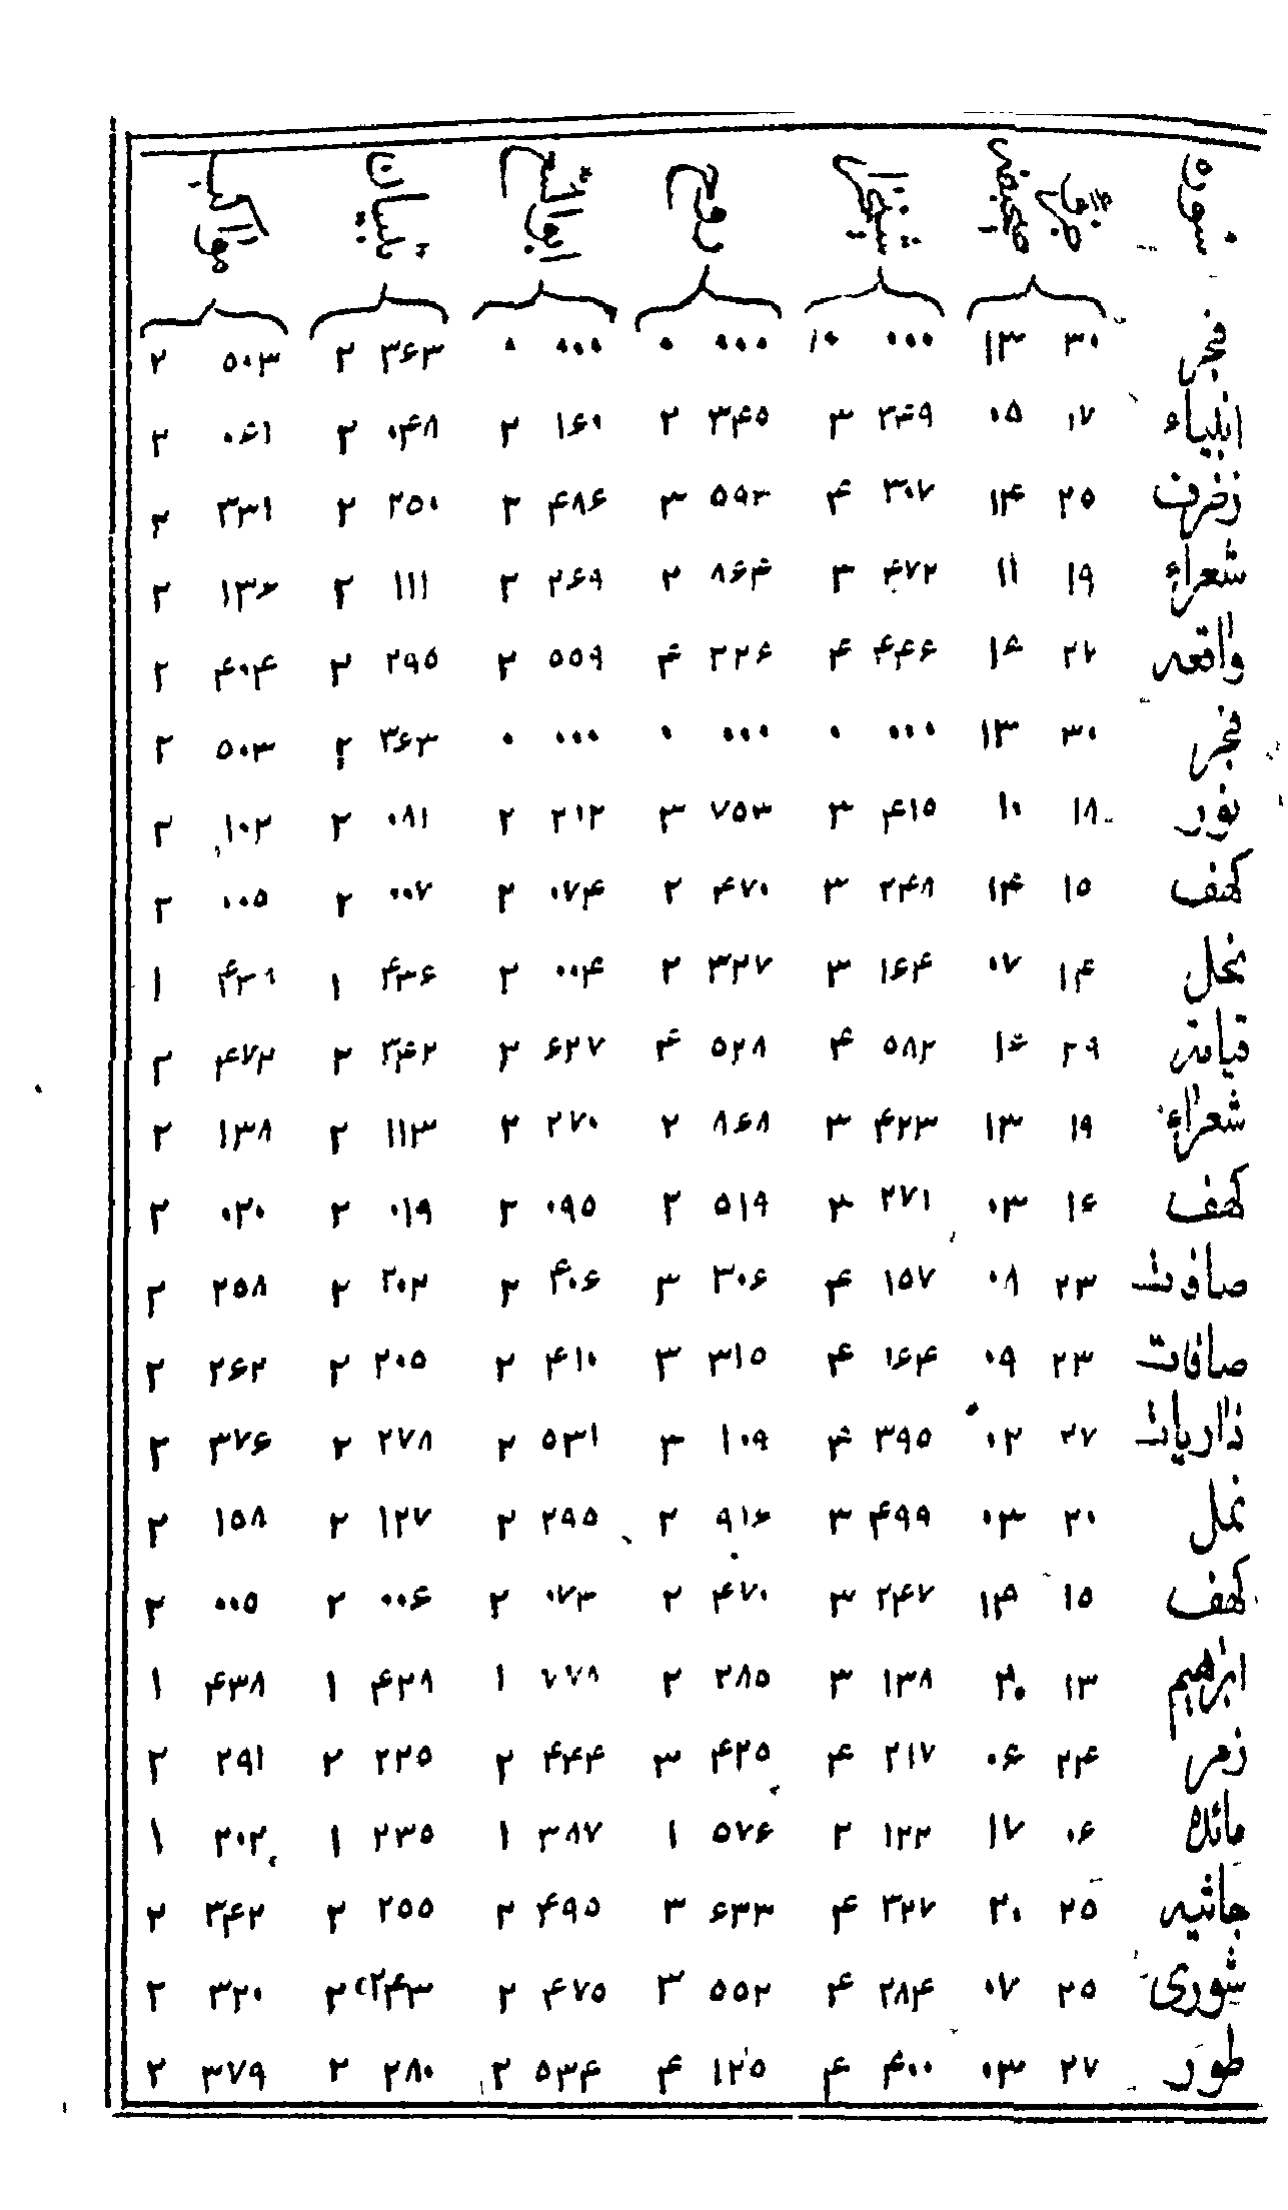 سوره جزؤ صفحه شیخزاده روح ابوالسعود تبیان مواکب
فجر ۳۰ ۱۳ ۰۰۰ ۱۰ ۰۰۰ ۰ ۰۰۰ ۰ ۳۶۳ ۲ ۵۰۳ ۲
انبیاء ۱۷ ۰۵ ۳۴۹ ۳ ۳۴۵ ۲ ۱۶۰ ۲ ۰۴۸ ۲ ۰۶۱ ۲
زخرف ۲۵ ۱۴ ۳۰۷ ۴ ۵۹۳ ۳ ۴۸۶ ۲ ۲۵۰ ۲ ۳۳۱ ۲
شعراء ۱۹ ۱۱ ۴۷۲ ۳ ۸۶۴ ۲ ۲۶۹ ۲ ۱۱۱ ۲ ۱۳۶ ۲
واقعه ۲۷ ۱۶ ۴۴۶ ۴ ۲۲۶ ۴ ۵۵۹ ۲ ۲۹۵ ۲ ۴۰۴ ۲
فجر ۳۰ ۱۳ ۰۰۰ ۰ ۰۰۰ ۰ ۰۰۰ ۰ ۳۶۳ ۲ ۵۰۳ ۲
نور ۱۸ ۱۰ ۴۱۵ ۳ ۷۵۳ ۳ ۲۱۲ ۲ ۰۸۱ ۲ ۱۰۲ ۲
کهف ۱۵ ۱۴ ۲۴۸ ۳ ۴۷۰ ۲ ۰۷۴ ۲ ۰۰۷ ۲ ۰۰۵ ۲
نحل ۱۴ ۰۷ ۱۶۴ ۳ ۳۲۷ ۲ ۰۰۴ ۲ ۴۳۶ ۱ ۴۳۹ ۱
قیامة ۲۹ ۱۶ ۵۸۲ ۴ ۵۲۸ ۴ ۶۲۷ ۲ ۳۴۲ ۲ ۴۷۲ ۲
شعراء ۱۹ ۱۳ ۴۲۳ ۳ ۸۶۸ ۲ ۲۷۰ ۲ ۱۱۳ ۲ ۱۳۸ ۲
کهف ۱۶ ۰۳ ۲۷۱ ۳ ۵۱۹ ۲ ۰۹۵ ۲ ۰۱۹ ۲ ۰۲۰ ۲
صافات ۲۳ ۰۸ ۱۵۷ ۴ ۳۰۶ ۳ ۴۰۶ ۲ ۲۰۲ ۲ ۲۵۸ ۲
صافات ۲۳ ۰۹ ۱۶۴ ۴ ۳۱۵ ۳ ۴۱۰ ۲ ۲۰۵ ۲ ۲۶۲ ۲
ذاریات ۲۷ ۰۲ ۳۹۵ ۴ ۱۰۹ ۳ ۵۳۱ ۲ ۲۷۸ ۲ ۳۷۶ ۲
نمل ۲۰ ۰۳ ۴۹۹ ۳ ۹۱۶ ۲ ۲۹۵ ۲ ۱۲۷ ۲ ۱۵۸ ۲
کهف ۱۵ ۱۴ ۲۴۷ ۳ ۴۷۰ ۲ ۰۷۳ ۲ ۰۰۶ ۲ ۰۰۵ ۲
ابراهیم ۱۳ ۲۰ ۱۳۸ ۳ ۲۸۵ ۲ ۱ ۴۲۸ ۱ ۴۳۸ ۱
زمر ۲۴ ۰۶ ۲۱۷ ۴ ۴۲۵ ۳ ۴۴۴ ۲ ۲۲۵ ۲ ۲۹۱ ۲
مائده ۰۶ ۱۷ ۱۲۲ ۲ ۵۷۶ ۱ ۳۸۷ ۱ ۲۳۵ ۱ ۲۰۲ ۱
جاثیه ۲۵ ۲۰ ۳۲۷ ۴ ۶۳۳ ۳ ۴۹۵ ۲ ۲۵۵ ۲ ۳۴۲ ۲
شوری ۲۵ ۰۷ ۲۸۴ ۴ ۵۵۲ ۳ ۴۷۵ ۲ ۲۴۳ ۲ ۳۲۰ ۲
طور ۲۷ ۰۳ ۴۰۰ ۴ ۱۲۵ ۴ ۵۳۴ ۲ ۲۸۰ ۲ ۳۷۹ ۲